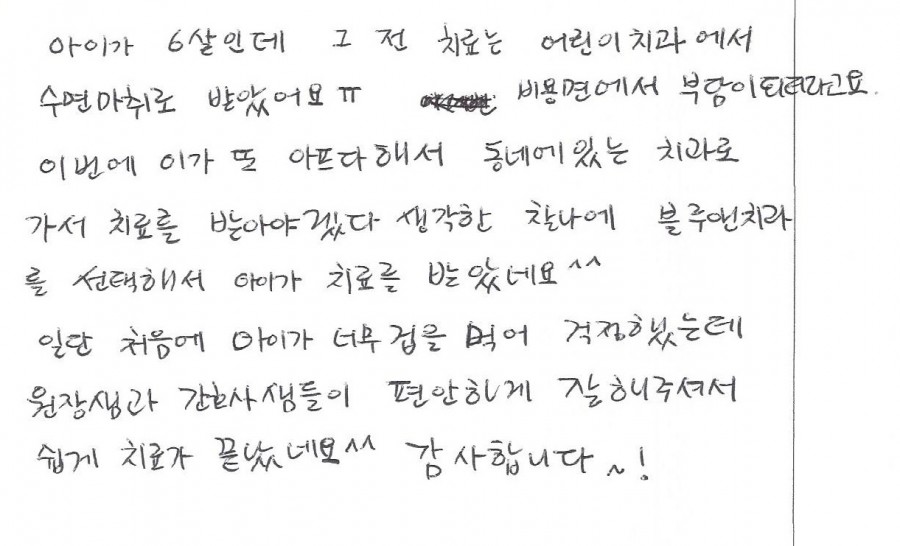 아이가 6살인데 그 전 치료는 어린이치과에서
수면마취로 받았어요ㅠ 비용면에서 부담이되더라고요.
이번에 이가 또 아프다해서 동네에있는 치과로
가서 치료를 받아야겠다 생각한 찰나에 블루앤치과
를 선택해서 아이가 치료를 받았네요^^
일단 처음에 아이가 너무겁을 먹어 걱정했는데
원장샘과 간호사샘들이 편안하게 잘해주셔서
쉽게 치료가 끝났네요^^ 감사합니다~!